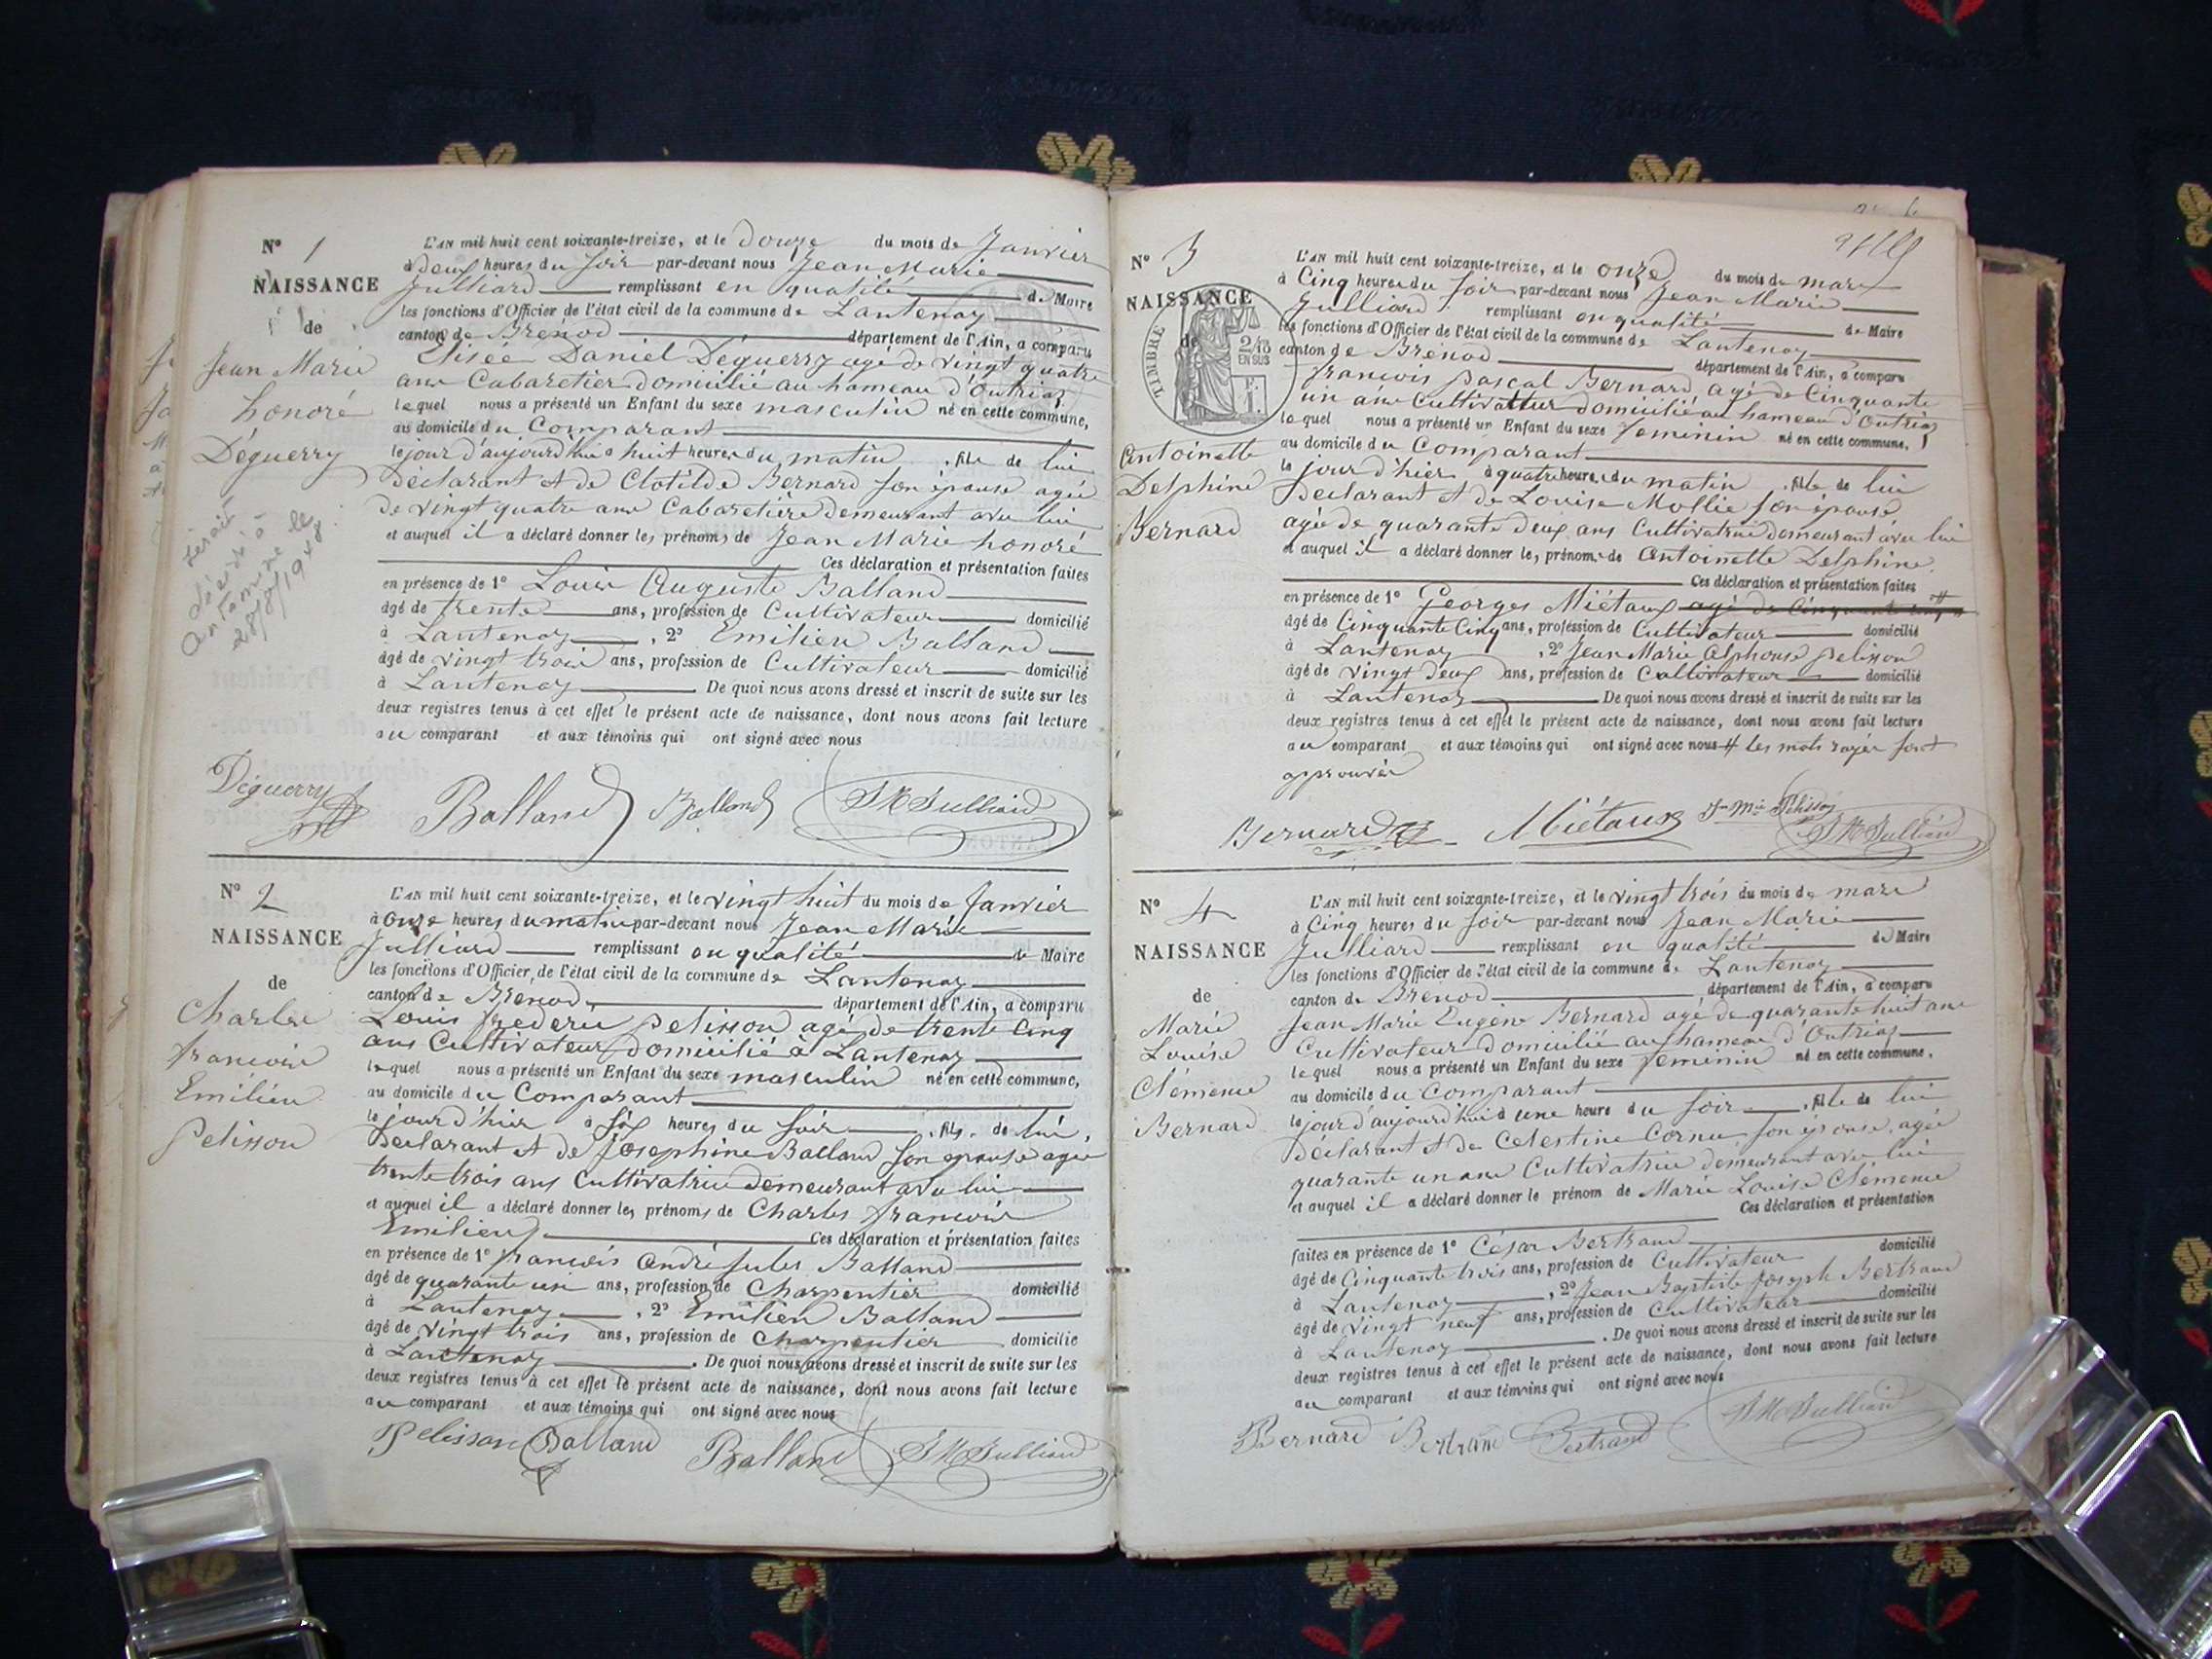 N° 1
NAISSANCE
de
Jean Marie
honoré
Déguerry
serait
décédé à
le
28/8/1948
L'AN mil huit cent soixante-treize, et le Douze du mois de Janvier
à deux heures du soir par-devant nous Jean Marie
Julliard remplissant en qualité de Maire
les fonctions d'Officier de l'état civil de la commune de Lantenay
canton de Brénod département de l'Ain, a comparu
Elisée Daniel Déguerry agé de vingt quatre
ans Cabaretier domicilié au hameau d'Outriaz
lequel nous a présenté un Enfant du sexe masculin né en cette commune,
au domicile du Comparant
le jour d'aujourd'hui à huit heures du matin, fils de lui
Déclarant et de Clotilde Bernard son épouse agée
de vingt quatre ans Cabaretière demeurant avec lui
et auquel il a déclaré donner les prénoms de Jean Marie honoré
Ces déclaration et présentation faites
en présence de 1° Louis Auguste Balland
âgé de trente ans, profession de Cultivateur domicilié
à Lantenay, 2° Emilien Balland
âgé de vingt trois ans, profession de Cultivateur domicilié
à Lantenay. De quoi nous avons dressé et inscrit de suite sur les
deux registres tenus à cet effet le présent acte de naissance, dont nous avons fait lecture
au comparant et aux témoins qui ont signé avec nous
Déguerry Balland Balland JM Julliard
N° 2
NAISSANCE
de
Charles
francois
Emilien
Pelisson
L'AN mil huit cent soixante-treize, et le vingt huit du mois de Janvier
à onze heures du matin par-devant nous Jean Marie
Julliard remplissant en qualité de Maire
les fonctions d'Officier de l'état civil de la commune de Lantenay
canton de Brénod département de l'Ain, a comparu
Louis frederic pelisson agé de trente cinq
ans Cultivateur domicilié à Lantenay
lequel nous a présenté un Enfant du sexe masculin né en cette commune,
au domicile du Comparant
le jour d'hier à six heures du soir, fils de lui,
Déclarant et de Josephine Balland son epouse agée
trente trois ans Cultivatrice demeurant avec lui
et auquel il a déclaré donner les prénoms de Charles francois
Emilien Ces déclaration et présentation faites
en présence de 1° francois andré jules Balland
âgé de quarante un ans, profession de Charpentier domicilié
à Lantenay, 2° Emilien Balland
âgé de vingt trois ans, profession de Charpentier domicilié
à Lantenay. De quoi nous avons dressé et inscrit de suite sur les
deux registres tenus à cet effet le présent acte de naissance, dont nous avons fait lecture
au comparant et aux témoins qui ont signé avec nous
Pelisson Balland Balland JM Julliard
N° 3
NAISSANCE
de
TIMBRE
2/10
EN SUS
Antoinette
Delphine
Bernard
L'AN mil huit cent soixante-treize, et le onze du mois de mars
à Cinq heures du soir par-devant nous Jean Marie
Julliard remplissant en qualité de Maire
les fonctions d'Officier de l'état civil de la commune de Lantenay
canton de Brenod département de l'Ain, a comparu
francois pascal Bernard agé de Cinquante
un ans Cultivateur domicilié au hameau d'Outriaz
lequel nous a présenté un Enfant du sexe feminin né en cette commune,
au domicile du Comparant
le jour d'hier à quatre heures du matin, fille de lui
Déclarant et de Louise Mollie son épouse
agée de quarante deux ans Cultivatrice demeurant avec lui
et auquel il a déclaré donner les prénoms de Antoinette Delphine.
Ces déclaration et présentation faites
en présence de 1° Georges Miétaux agé de Cinquante cinq #
âgé de Cinquante Cinq ans, profession de Cultivateur domicilié
à Lantenay, 2° Jean Marie Alphonse pelisson
âgé de vingt deux ans, profession de Cultivateur domicilié
à Lantenay De quoi nous avons dressé et inscrit de suite sur les
deux registres tenus à cet effet le présent acte de naissance, dont nous avons fait lecture
au comparant et aux témoins qui ont signé avec nous # les mots rayés sont
approuvés
Bernard Miétaux J-Mie Pelisson JM Julliard
N° 4
NAISSANCE
de
Marie
Louise
Clémence
Bernard
L'AN mil huit cent soixante-treize, et le vingt trois du mois de mars
à Cinq heures du soir par-devant nous Jean Marie
Julliard remplissant en qualité de Maire
les fonctions d'Officier de l'état civil de la commune de Lantenay
canton de Brénod département de l'Ain, a comparu
Jean Marie Eugène Bernard agé de quarante huit ans
Cultivateur domicilié au hameau d'Outriaz
lequel nous a présenté un Enfant du sexe feminin né en cette commune,
au domicile du Comparant
le jour d'aujourd'hui à une heure du soir, fille de lui
Déclarant et de Celestine Cornu son épouse, agée
quarante un ans Cultivatrice demeurant avec lui
et auquel il a déclaré donner le prénom de Marie Louise Clémence
Ces déclaration et présentation
faites en présence de 1° César Bertrand
âgé de Cinquante trois ans, profession de Cultivateur domicilié
à Lantenay, 2° Jean Baptiste Joseph Bertrand
âgé de vingt neuf ans, profession de Cultivateur domicilié
à Lantenay. De quoi nous avons dressé et inscrit de suite sur les
deux registres tenus à cet effet le présent acte de naissance, dont nous avons fait lecture
au comparant et aux témoins qui ont signé avec nous
Bernard Bertrand Bertrand JM Julliard